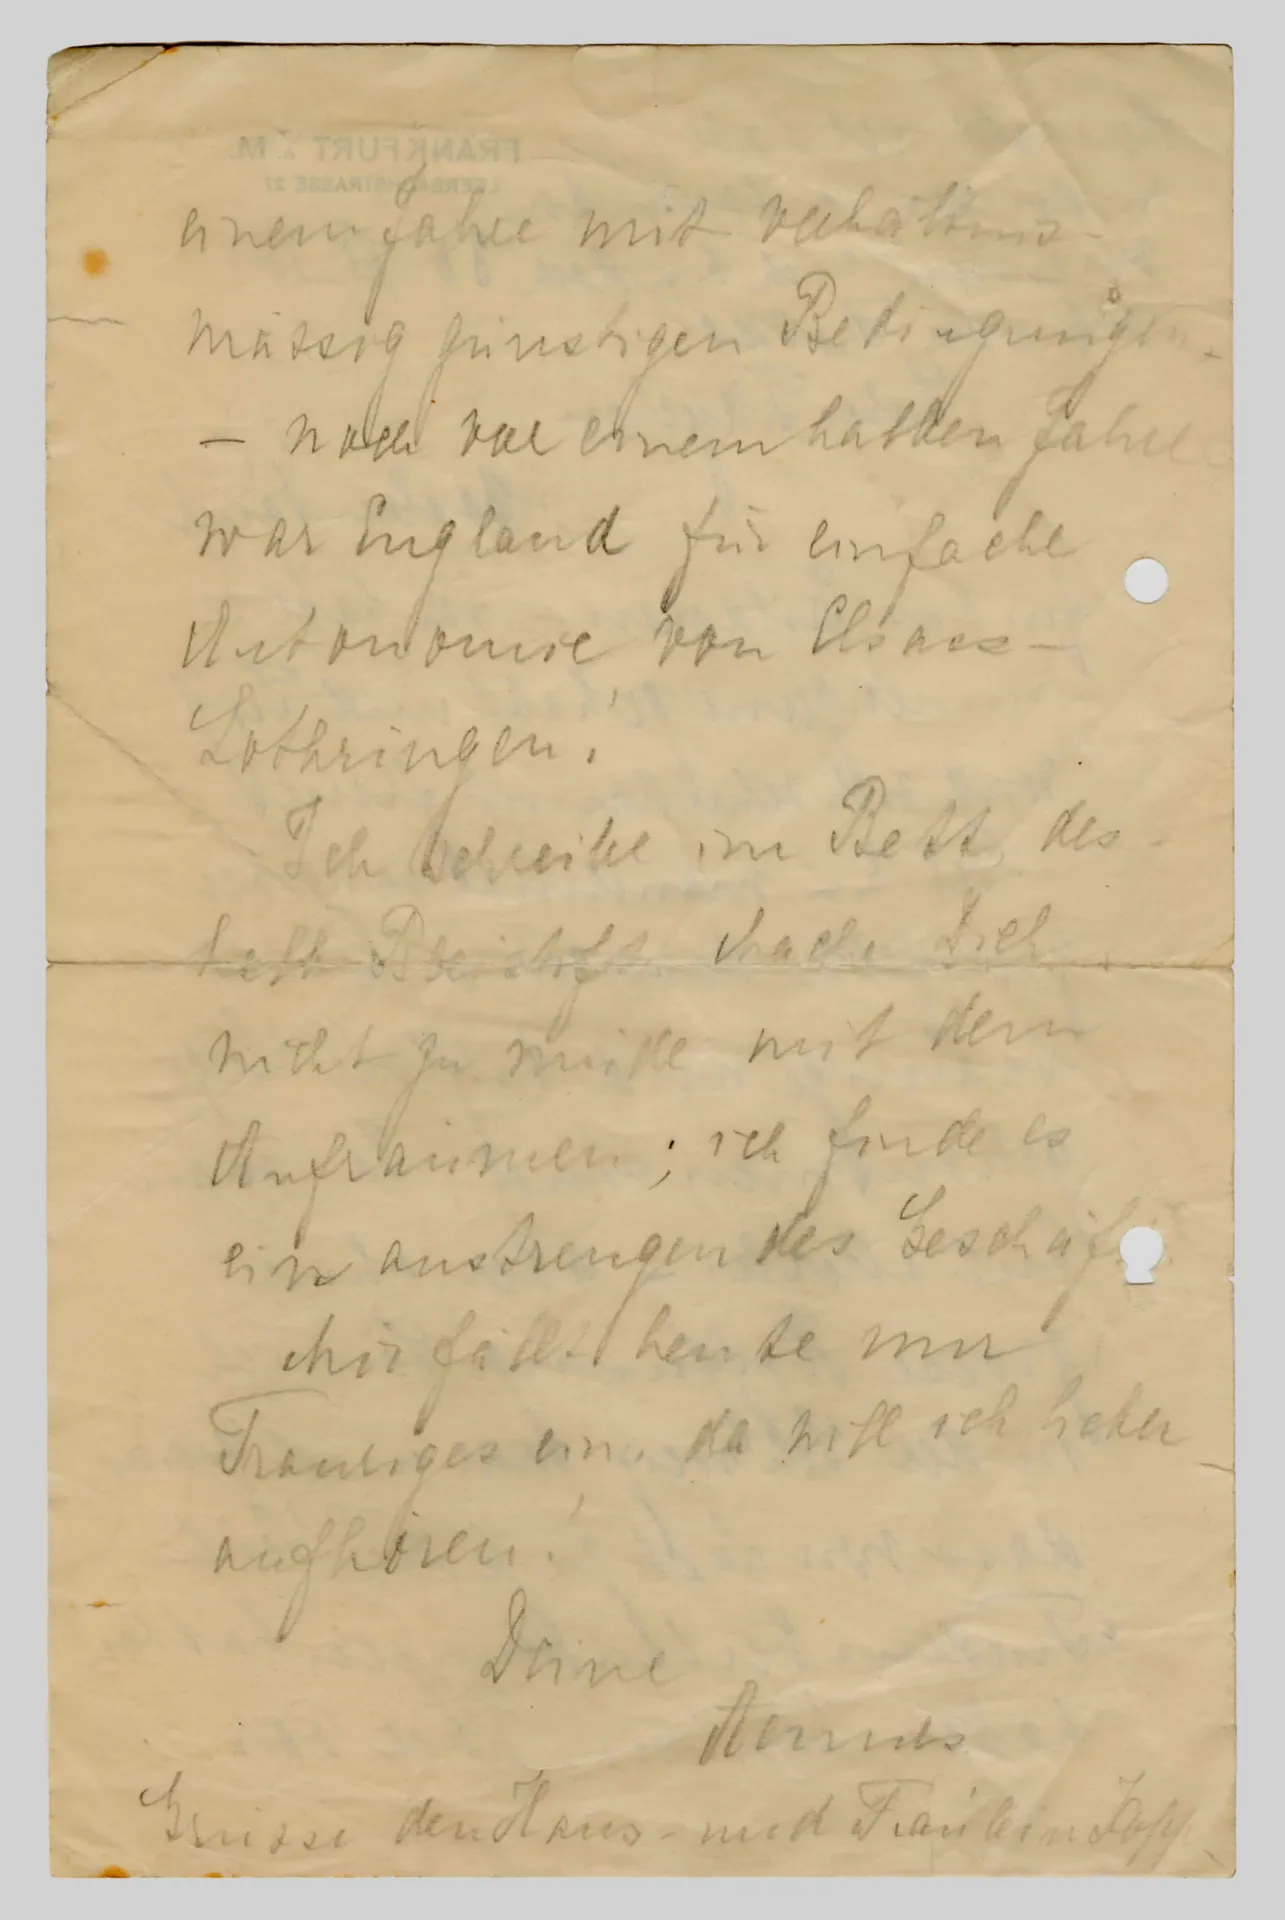 FRANKFURT A. M.
LEERBACHSTRASSE 27
einem Jahre mit verhältnis-
mässig günstigen Bedingungen.
– noch vor einem halben Jahre
war England für einfache
Autonomie von Elsass-
Lothringen!
Ich schreibe im Bett, des-
halb Bleistift. Mach Dich
nicht zu müde mit dem
Aufräumen; ich finde es
ein anstrengendes Geschäft.
Mir fällt heute nur
Trauriges ein, da will ich lieber
aufhören!
Deine
Grüsse den Hans und Fräulein